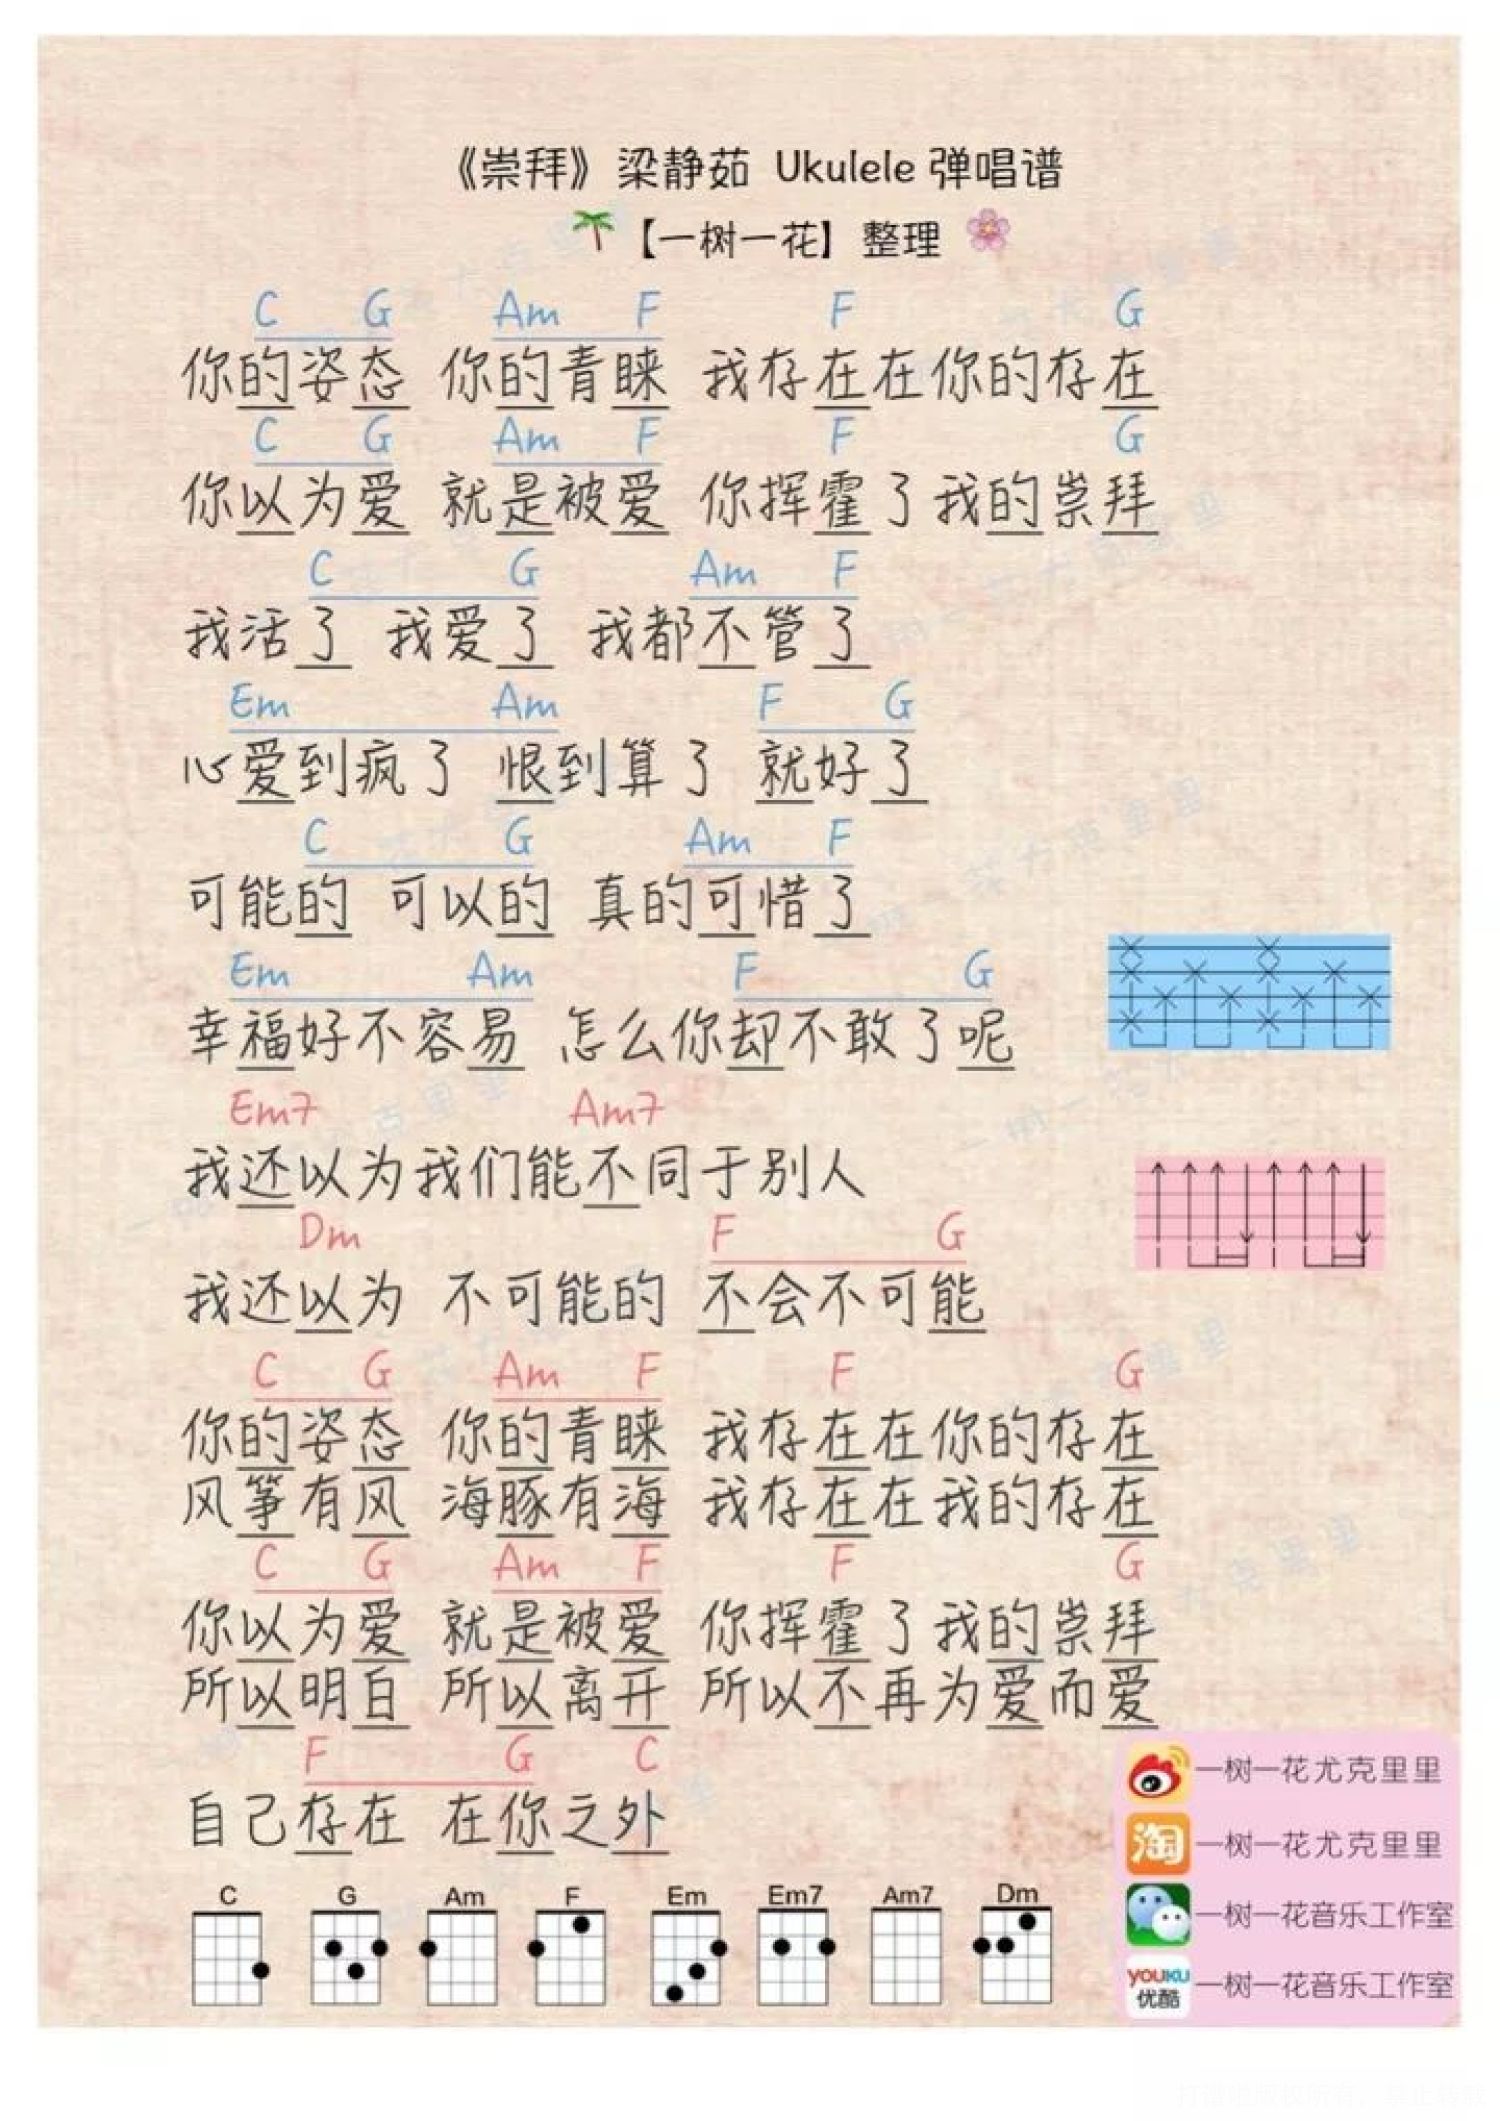 《崇拜》 梁静茹 Ukulele 弹唱谱
【一树一花】 整理
C G Am F F G
你的姿态 你的青睐 我存在在你的存在
C G Am F F G
你以为爱 就是被爱 你挥霍了我的崇拜
C G Am F
我活了 我爱了 我都不管了
Em Am F G
心爱到疯了 恨到算了 就好了
C G Am F
可能的 可以的 真的可惜了
Em Am F G
幸福好不容易 怎么你却不敢了呢
Em7 Am7
我还以为我们能不同于别人
Dm F G
我还以为 不可能的 不会不可能
C G Am F F G
你的姿态 你的青睐 我存在在你的存在
风筝有风 海豚有海 我存在在我的存在
C G Am F F G
你以为爱 就是被爱 你挥霍了我的崇拜
所以明白 所以离开 所以不再为爱而爱
F G C
自己存在 在你之外
C G Am F Em Em7 Am7 Dm
一树一花尤克里里
淘 一树一花尤克里里
一树一花音乐工作室
YOUKU 优酷 一树一花音乐工作室